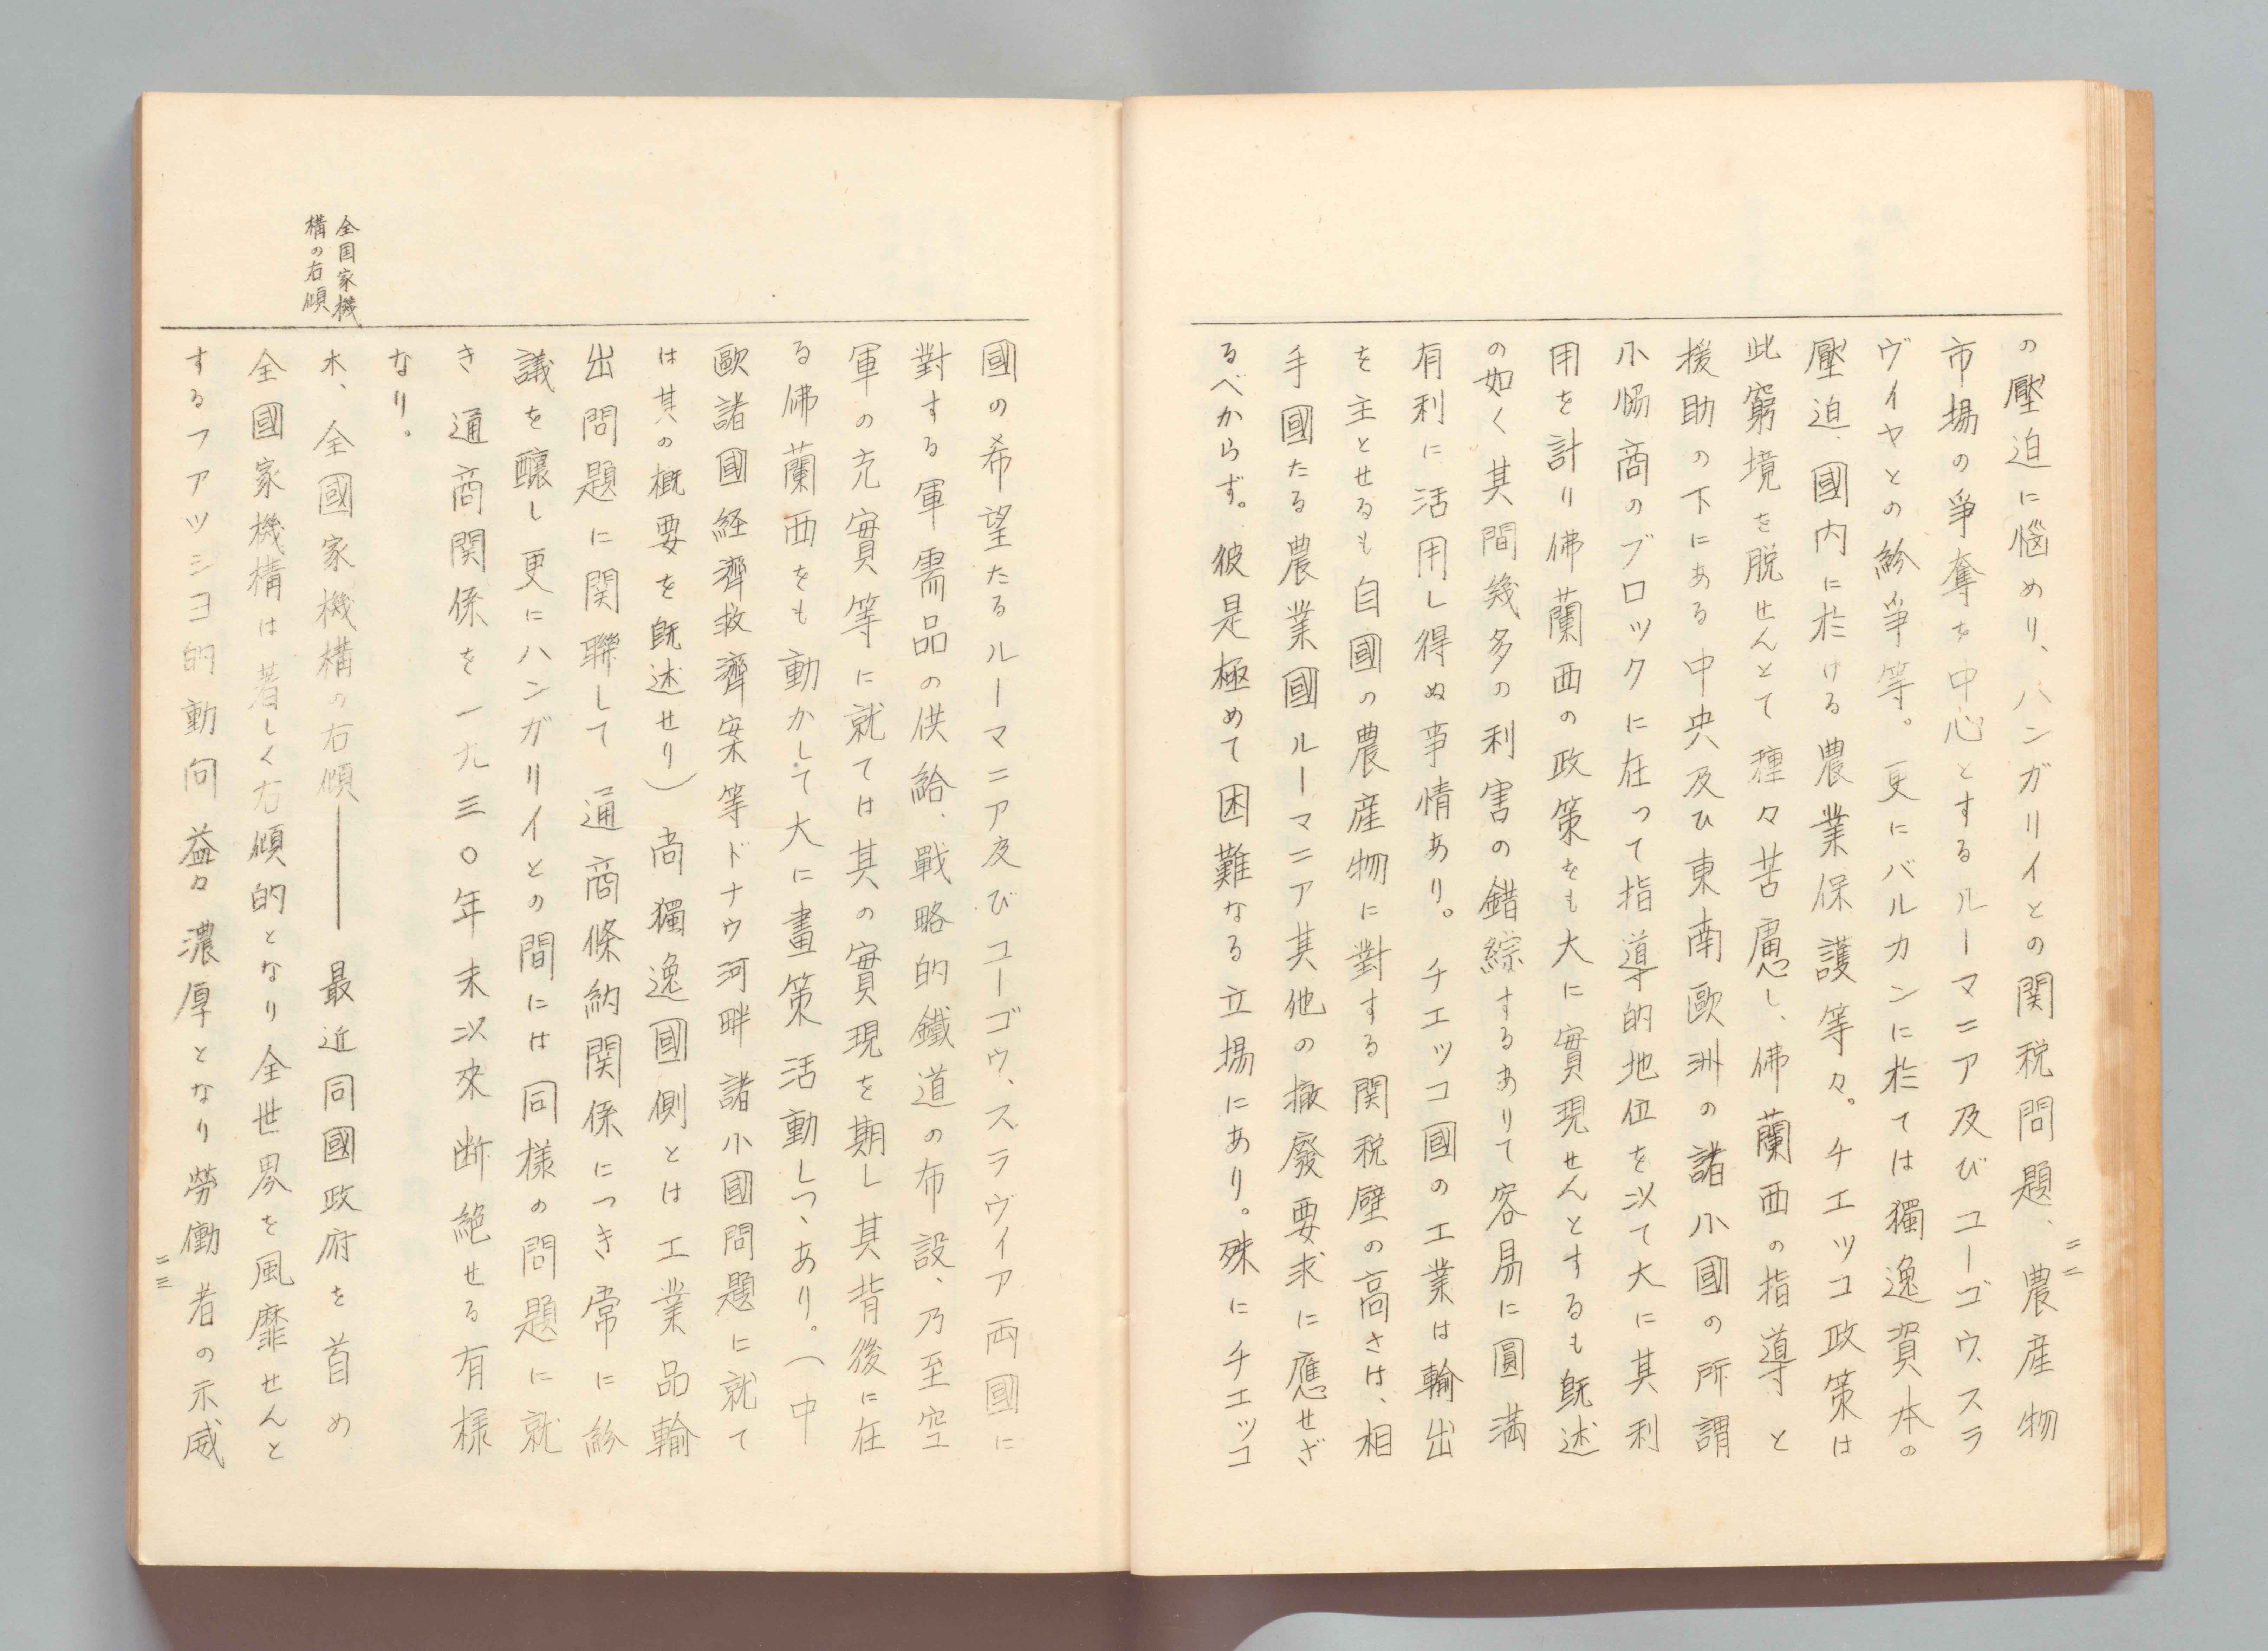 の壓迫に悩めり、ハンガリイとの関税問題、農産物
市場の爭奪を中心とするルーマニア及びユーゴウ、スラ
ヴイヤとの紛爭等。更にバルカンに於ては獨逸資本の
壓迫、國内に於ける農業保護等々。チエツコ政策は
此窮境を脱せんとて種々苦慮し、佛蘭西の指導と
援助の下にある中央及ひ東南歐洲の諸小國の所謂
小協商のブロックに在つて指導的地位を以て大に其利
用を計り佛蘭西の政策をも大に實現せんとするも既述
の如く其間幾多の利害の錯綜するありて容易に圓満
有利に活用し得ぬ事情あり。チエツコ國の工業は輸出
を主とせるも自國の農産物に對する関税壁の高さは、相
手國たる農業國ルーマニア其他の撤廢要求に應せざ
るべからず。彼是極めて困難なる立場にあり。殊にチエッコ
二二
國の希望たるルーマニア及びユーゴウ、スラヴイア両國に
對する軍需品の供給、戰略的鐵道の布設、乃至空
軍の充實等に就ては其の實現を期し其背後に在
る佛蘭西をも動かして大に畫策活動しつゝあり。（中
歐諸國経濟救濟案等ドナウ河畔諸小國問題に就て
は其の概要を既述せり）尚獨逸國側とは工業品輸
出問題に関聯して通商條約関係につき常に紛
議を醸し更にハンガリイとの間には同様の問題に就
き通商関係を一九三〇年末以來断絶せる有様
なり。
全国家機
構の右傾
ホ、全國家機構の右傾――最近同國政府を首め
全國家機構は著しく右傾的となり全世界を風靡せんと
するフアツシヨ的動向益々濃厚となり勞働者の示威
二三